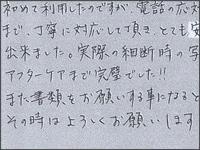 初めて利用したのですが、電話の応対
まで、丁寧に対応して頂き、とても安
出来ました。実際の細断時の写
アフターケアまで完璧でした!!
また書類をお願いする事になると
その時はよろしくお願いします